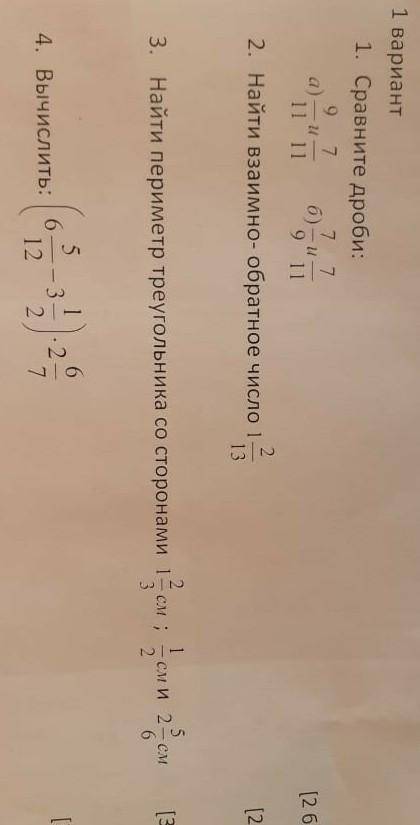 1 вариант
1. Сравните дроби:
а) 9/11 и 7/11 б) 7/9 и 7/11
[2 б
2. Найти взаимно- обратное число 1 2/13
[2
3. Найти периметр треугольника со сторонами 1 2/3 см ; 1/2 см и 2 5/6 см
[3
4. Вычислить: (6 5/12 − 3 1/2) · 2 6/7
[